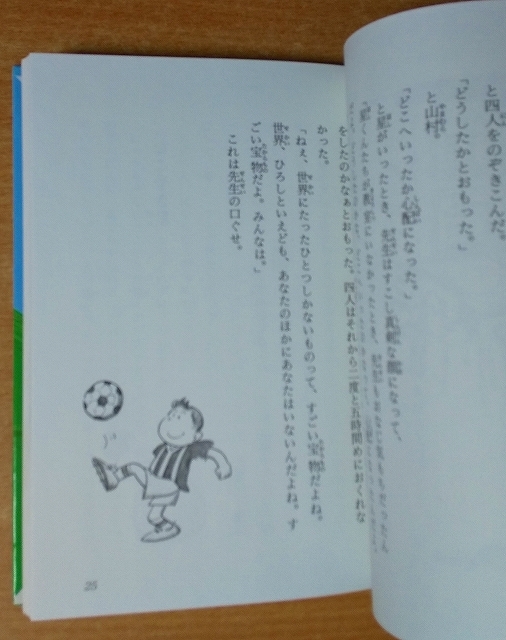 と四人をのぞきこんだ。
「どうしたかとおもった。」
と山村。
「どこへいったか心配になった。」
と星がいったとき、先生はすこし真剣な顔になって、
をしたのかなぁとおもった。四人はそれから二度と五時間めにおくれな
かった。
「ねえ、世界にたったひとつしかないものって、すごい宝物だよね。
世界、ひろしといえども、あなたのほかにあなたはいないんだよね。す
ごい宝物だよ。みんなは。」
これは先生の口ぐせ。
25